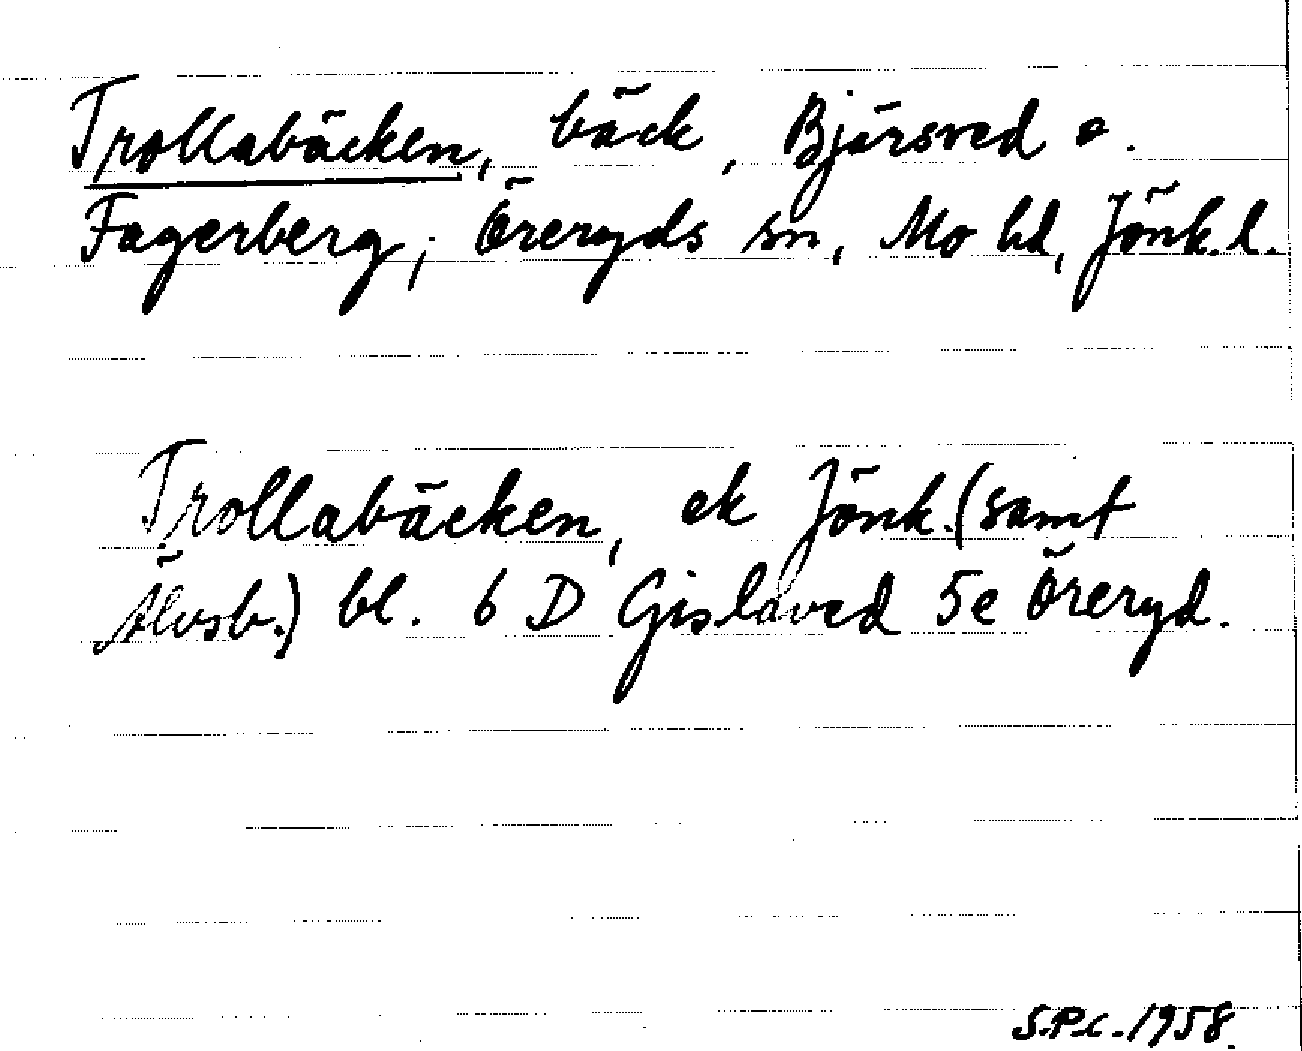 Trollabäcken, bäck, Bjärsved o.
Fagerberg, Öreryds sn, Mo hd, Jönk.l.
Trollabäcken, ek Jönk. (samt
Älvsb.) bl. 6 D Gislaved 5e Öreryd.
S.P.C. 1958.